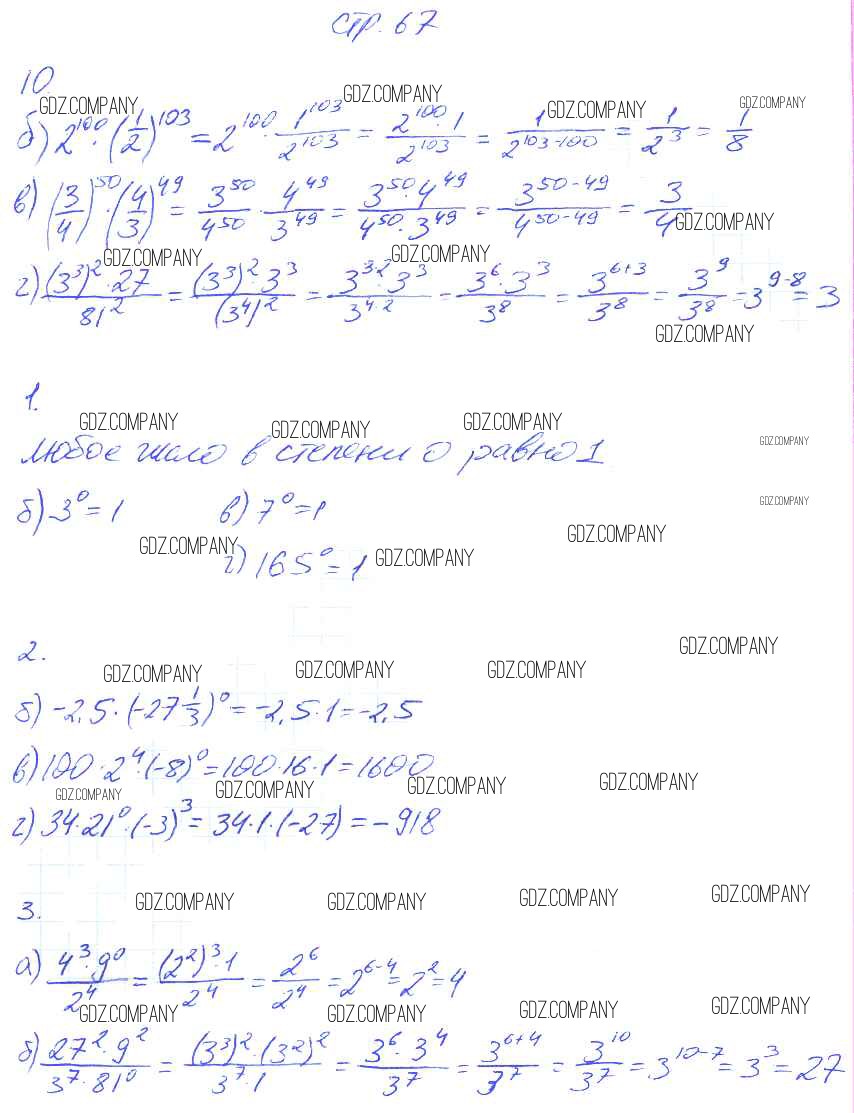 стр. 67
10.
GDZ.COMPANY GDZ.COMPANY GDZ.COMPANY GDZ.COMPANY
б) 2^100 · (1/2)^103 = 2^100 · 1^103/2^103 = (2^100 · 1)/2^103 = 1/2^(103-100) = 1/2^3 = 1/8
в) (3/4)^50 · (4/3)^49 = 3^50/4^50 · 4^49/3^49 = (3^50 · 4^49)/(4^50 · 3^49) = 3^(50-49)/4^(50-49) = 3/4
GDZ.COMPANY GDZ.COMPANY GDZ.COMPANY
г) ((3^3)^2 · 27)/81^2 = ((3^3)^2 · 3^3)/(3^4)^2 = (3^(3·2) · 3^3)/3^(4·2) = (3^6 · 3^3)/3^8 = 3^(6+3)/3^8 = 3^9/3^8 = 3^(9-8) = 3
GDZ.COMPANY
1.
GDZ.COMPANY GDZ.COMPANY GDZ.COMPANY GDZ.COMPANY
Любое число в степени 0 равно 1
GDZ.COMPANY
б) 3^0 = 1 в) 7^0 = 1
GDZ.COMPANY GDZ.COMPANY GDZ.COMPANY
г) 165^0 = 1
2.
GDZ.COMPANY
GDZ.COMPANY GDZ.COMPANY GDZ.COMPANY
б) -2,5 · (-27 1/3)^0 = -2,5 · 1 = -2,5
в) 100 · 2^4 · (-8)^0 = 100 · 16 · 1 = 1600
GDZ.COMPANY GDZ.COMPANY GDZ.COMPANY GDZ.COMPANY
г) 34 · 21^0 · (-3)^3 = 34 · 1 · (-27) = -918
GDZ.COMPANY GDZ.COMPANY GDZ.COMPANY GDZ.COMPANY
3.
а) (4^3 · 9^0)/2^4 = ((2^2)^3 · 1)/2^4 = 2^6/2^4 = 2^(6-4) = 2^2 = 4
GDZ.COMPANY GDZ.COMPANY GDZ.COMPANY GDZ.COMPANY
б) (27^2 · 9^2)/(3^7 · 81^0) = ((3^3)^2 · (3^2)^2)/(3^7 · 1) = (3^6 · 3^4)/3^7 = 3^(6+4)/3^7 = 3^10/3^7 = 3^(10-7) = 3^3 = 27